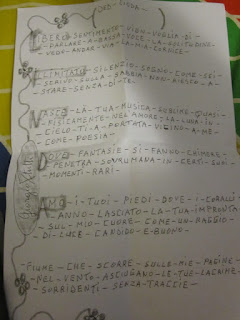 LIBERO SENTIMENTO VIEN VOGLIA DI
PARLARE A BASSA VOCE LA SOLITUDINE
VEDO ANDAR VIA LA MIA CARNICE
ILLIMITATO SILENZIO SOGNO COME SEI
SCRIVO SULLA SABBIA NON RIESCO A
STARE SENZA DI TE
VASTO LA TUA MUSICA SUBLIME QUASI
MISTICAMENTE NELL'AMORE LA LUNA IN
CIELO TI A PORTATA VICINO A ME
COME POESIA
DOPO FANTASIE SI FANNO CHIMERE
PENETRA SOVRUMANA IN CERTI SUOI
MOMENTI RARI
AMO I TUOI PIEDI DEVE I CORALLI
ANNO LASCIATO LA TUA IMPRONTA
SUL MIO CUORE COME UN RAGGIO
DI LUCE CANDIDO E BUONO
FIUME CHE SCORRE SULLE MIE PAGINE
NEL VENTO ASCIUGANO LE TUE LACRIME
SORRIDENTI SENZA TRACCIE